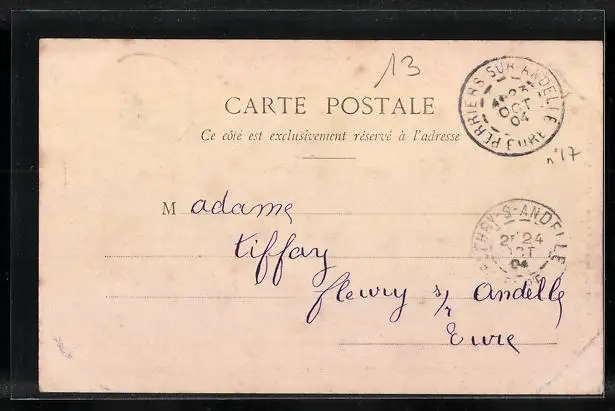 13
CARTE POSTALE
Ce côté est exclusivement réservé à l'adresse
PERRIERS SUR ANDELLE
23
OCT
04
EURE
n°17
Madame
tiffay
fleury s/ Andelle
Eure
FLEURY-S-ANDELLE
2E 24
OCT
04